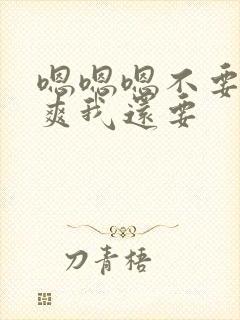 嗯嗯嗯不要
爽我還要
刀青梧